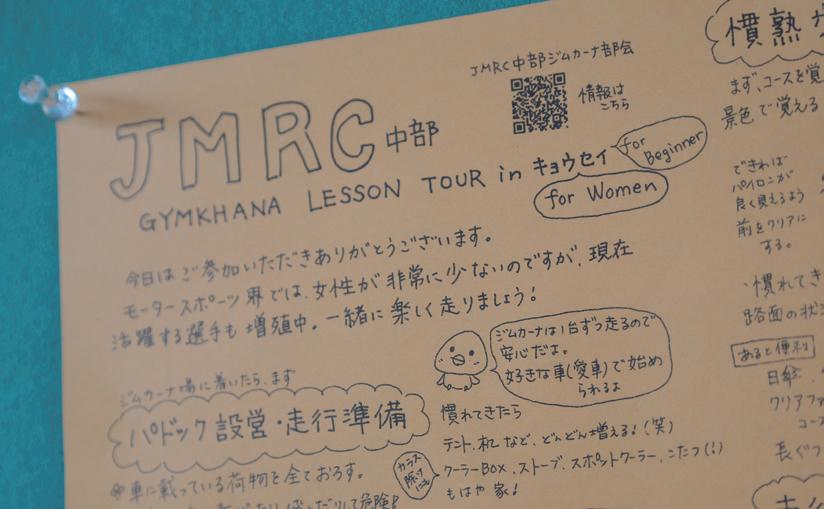 JMRC中部ジムカーナ部会
情報は
こちら
JMRC中部
GYMKHANA LESSON TOUR in キョウセイ
for Beginner
for Women
今日はご参加いただきありがとうございます。
モータースポーツ界では、女性が非常に少ないのですが、現在
活躍する選手も増殖中。一緒に楽しく走りましょう!
ジムカーナは1台ずつ走るので
安心だよ。
好きな車(愛車)で始め
られるよ
ジムカーナ場に着いたら、まず
パドック設営・走行準備
車に載っている荷物を全ておろす。
飛んだりして危険!
慣れてきたら
テント、机など、どんどん増える!(笑)
カラス
除け
にも
クーラーBOX、ストーブ、スポットクーラー、こたつ(!)
もはや家!
慣熟
まず、コースを覚
景色で覚える
できれば
パイロンが
良く見えるよう
前をクリアに
する。
・慣れてき
路面の状
あると便利
日傘、
クリアファ
コース
長ぐつ